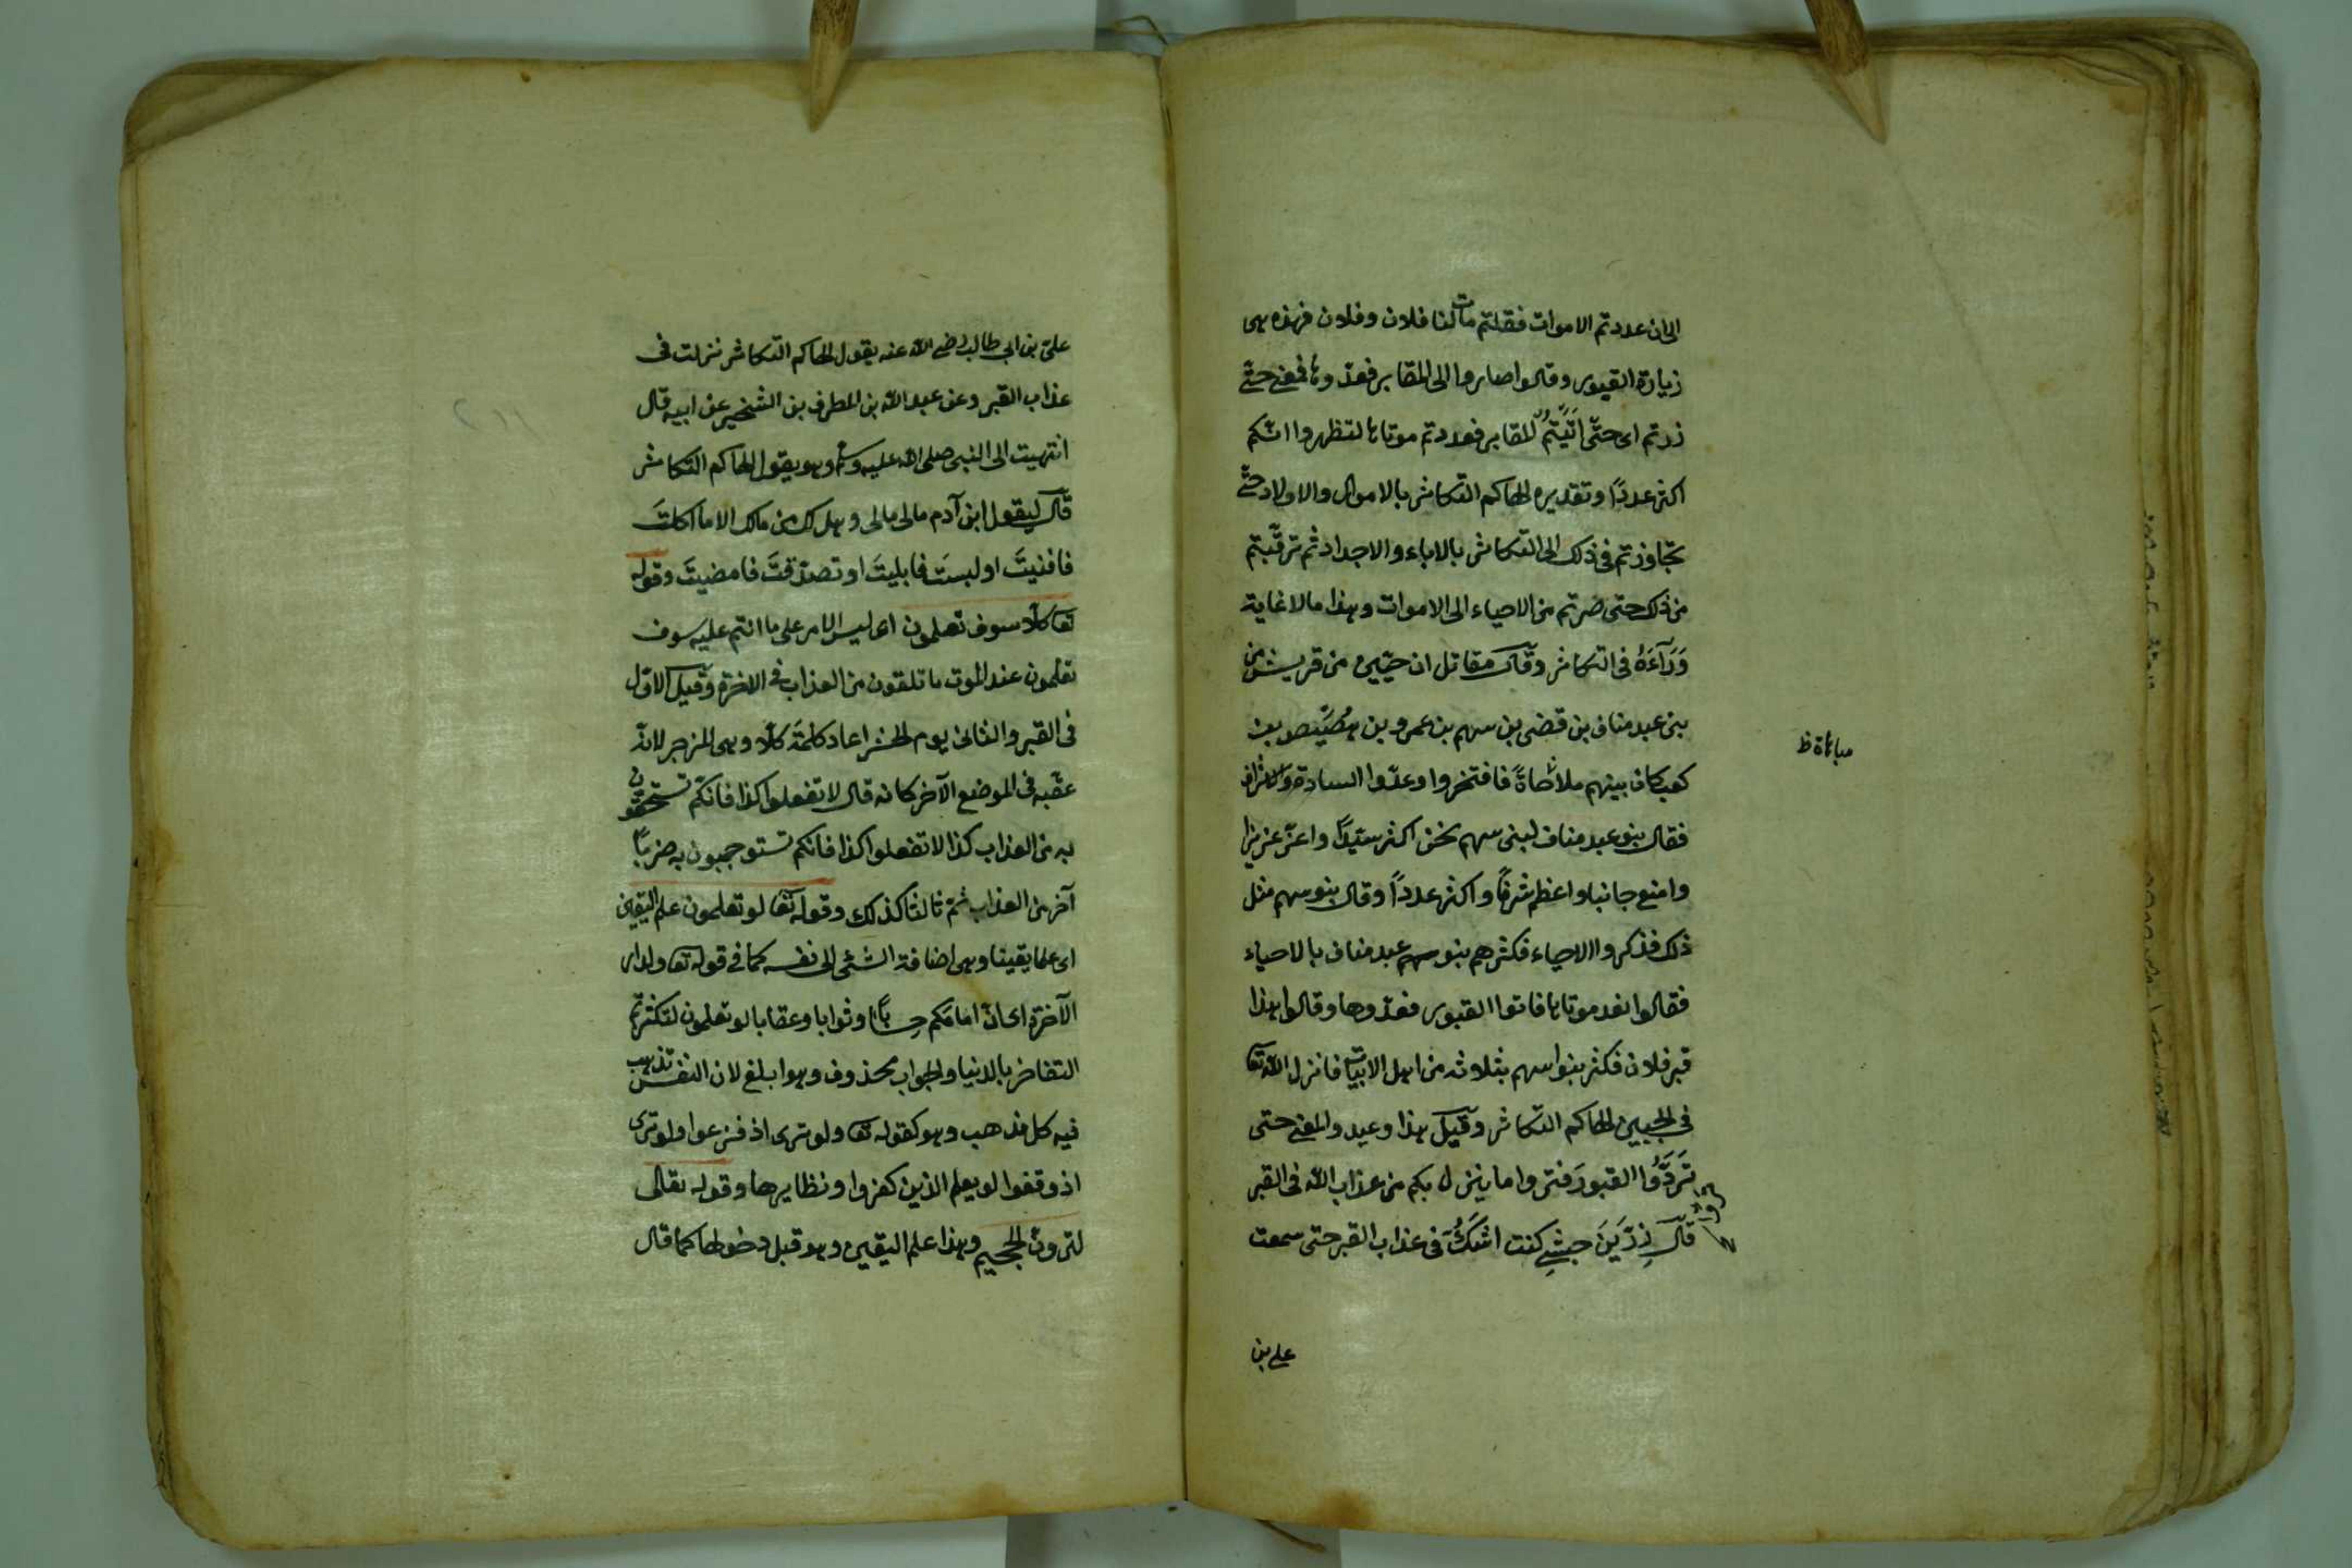 الى ان عددتم الاموات فقلتم مات لنا فلان وفلان فهذه هى
زيارة القبور وقالوا صاروا الى المقابر فعدّوها فمعنى حتى
زرتم اى حتّى اَتَيْتُم المقابر فعددتم موتاها لتظهروا انّكم
اكثر عددًا وتقديره الهاكم التكاثر بالاموال والاولاد حتى
تجاوزتم فى ذلك الى التكاثر بالاباء والاجداد ثم ترقّيتم
من ذلك حتى صرتم من الاحياء الى الاموات وهذا مالا غاية
وَرَآءَهُ فى التكاثر وقال مقاتل ان حيّين من قريش من
بنى عبد مناف بن قضى بن سهم بن عمرو بن هصيص بن
كعب كان بينهم ملاحاةً فافتخروا وعدّوا السادة والاشراف
مباهاة ظ
فقال بنو عبد مناف لبنى سهم نحن اكثر سيّدًا واعزّ عزيزا
وامنع جانبا واعظم شرفًا واكثر عددًا وقال بنو سهم مثل
ذلك فذكروا الاحياء فكثرهم بنو سهم عبد مناف بالاحياء
فقالوا نعد موتاها فاتوا القبور فعدّوها وقالوا هذا
قبر فلان فكثر بنوا سهم بثلاثة من اهل الابيات فانزل الله تعا
فى الحيين الهاكم التكاثر وقيل هذا وعيد والمعنى حتى
تَرِدُوا القبور فتروا ما ينزل بكم من عذاب الله فى القبر
قال زِرّ بن حبيش كنت اشكّ فى عذاب القبر حتى سمعت
على بن
علىّ بن ابى طالب رضى الله عنه يقول الهاكم التكاثر نزلت فى
عذاب القبر وعن عبد الله بن المطرف بن الشخير عن ابيه قال
انتهيت الى النبى صلى الله عليه وسلم وهو يقول الهاكم التكاثر
قال يقول ابن آدم مالى مالى وهل لك من مالك الا ما اكلتَ
فافنيتَ او لبستَ فابليتَ او تصدّقتَ فامضيتَ وقوله
تعا كلّا سوف تعلمون اى ليس الامر على ما انتم عليه سوف
تعلمون عند الموت ما تلقون من العذاب فى الاخرة وقيل الاوّل
فى القبر والثانى يوم الحشر اعاد كلمة كلّا وهى للزجر لانه
عقّبه فى الموضع الآخر كانه قال لا تفعلوا كذا فانكم تستحقون
به من العذاب كذا لا تفعلوا كذا فانكم تستوجبون به ضربًا
آخر من العذاب ثم ثالثا كذلك وقوله تعا لو تعلمون علم اليقين
اى علما يقينا وهى اضافة الشئ الى نفسه كما فى قوله تعا ولدار
الآخرة اى انّ امامكم حسابًا وثوابا وعقابا لو تعلمون لتركتم
التفاخر بالدنيا والجواب محذوف وهو ابلغ لان النفس تذهب
فيه كل مذهب وهو كقوله تعا ولو ترى اذ فزعوا ولو ترى
اذ وقفوا لو يعلم الذين كفروا ونظايرها وقوله تعالى
لترونّ الجحيم وهذا علم اليقين وهو قبل دخولها كما قال